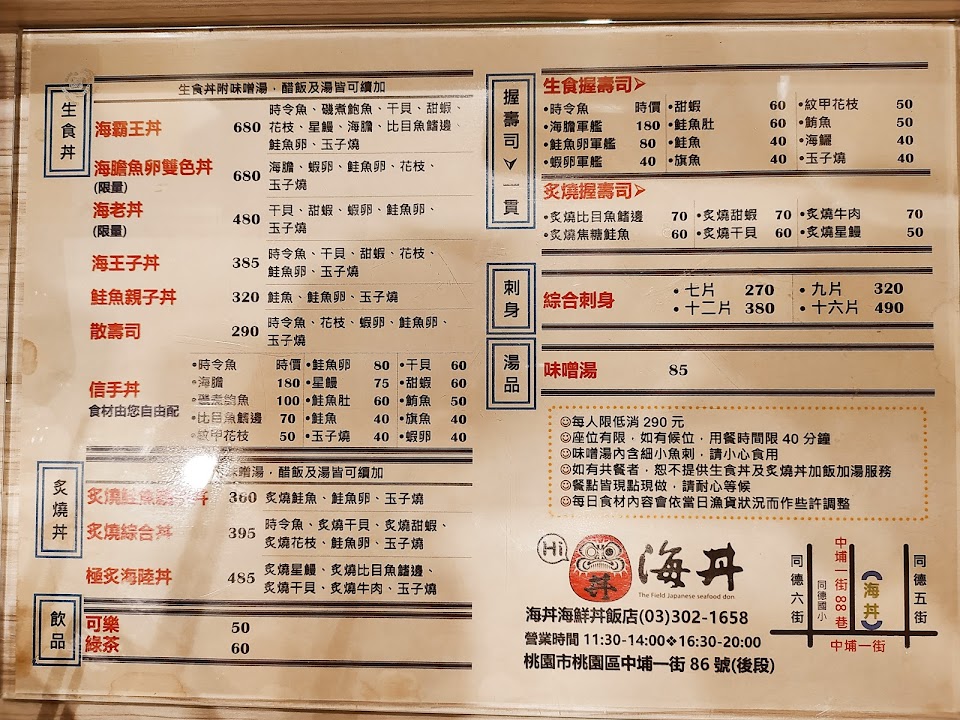 生食丼
生食丼附味噌湯，醋飯及湯皆可續加
海霸王丼 680 時令魚、磯煮鮑魚、干貝、甜蝦、
花枝、星鰻、海膽、比目魚鰭邊、
鮭魚卵、玉子燒
海膽魚卵雙色丼 680 海膽、蝦卵、鮭魚卵、花枝、
(限量) 玉子燒
海老丼 480 干貝、甜蝦、蝦卵、鮭魚卵、
(限量) 玉子燒
海王子丼 385 時令魚、干貝、甜蝦、花枝、
鮭魚卵、玉子燒
鮭魚親子丼 320 鮭魚、鮭魚卵、玉子燒
散壽司 290 時令魚、花枝、蝦卵、鮭魚卵、
玉子燒
信手丼
食材由您自由配
•時令魚 時價 •鮭魚卵 80 •干貝 60
•海膽 180 •星鰻 75 •甜蝦 60
•磯煮鮑魚 100 •鮭魚肚 60 •鮪魚 50
•比目魚鰭邊 70 •鮭魚 40 •旗魚 40
•紋甲花枝 50 •玉子燒 40 •蝦卵 40
炙燒丼
味噌湯，醋飯及湯皆可續加
炙燒鮭魚親子丼 360 炙燒鮭魚、鮭魚卵、玉子燒
炙燒綜合丼 395 時令魚、炙燒干貝、炙燒甜蝦、
炙燒花枝、鮭魚卵、玉子燒
極炙海陸丼 485 炙燒星鰻、炙燒比目魚鰭邊、
炙燒干貝、炙燒牛肉、玉子燒
飲品
可樂 50
綠茶 60
握壽司 一貫
生食握壽司
•時令魚 時價 •甜蝦 60 •紋甲花枝 50
•海膽軍艦 180 •鮭魚肚 60 •鮪魚 50
•鮭魚卵軍艦 80 •鮭魚 40 •海鱺 40
•蝦卵軍艦 40 •旗魚 40 •玉子燒 40
炙燒握壽司
•炙燒比目魚鰭邊 70 •炙燒甜蝦 70 •炙燒牛肉 70
•炙燒焦糖鮭魚 60 •炙燒干貝 60 •炙燒星鰻 50
刺身
綜合刺身
•七片 270 •九片 320
•十二片 380 •十六片 490
湯品
味噌湯 85
每人限低消 290 元
座位有限，如有候位，用餐時間限 40 分鐘
味噌湯內含細小魚刺，請小心食用
如有共餐者，恕不提供生食丼及炙燒丼加飯加湯服務
餐點皆現點現做，請耐心等候
每日食材內容會依當日漁貨狀況而作些許調整
Hi
丼
海丼
The Field Japanese seafood don
海丼海鮮丼飯店(03)302-1658
營業時間 11:30-14:00❖16:30-20:00
桃園市桃園區中埔一街 86 號(後段)
同德六街
同德國小
中埔一街88巷
海丼
同德五街
中埔一街